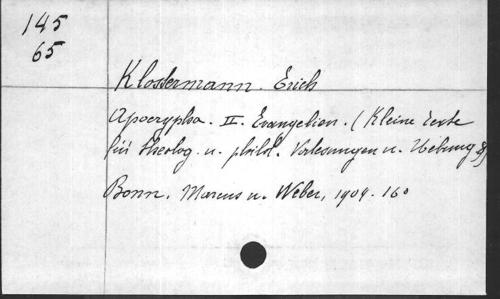 145
65
Klostermann. Erich
Apocrypha. II. Evangelien. (Kleine Texte
für theolog. u. philol. Vorlesungen u. Uebung 8)
Bonn, Marcus u. Weber, 1909. 16°